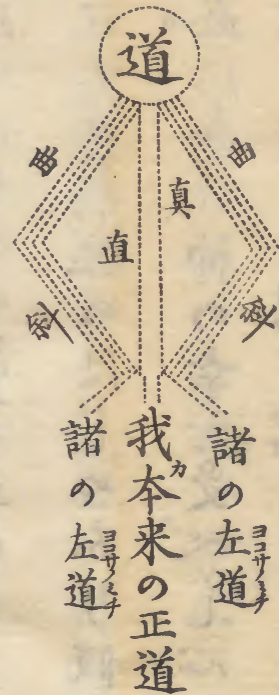 道
曲
曲
真
直
斜
斜
諸の左道
ヨコサノミチ
我本来の正道
カ
諸の左道
ヨコサノミチ